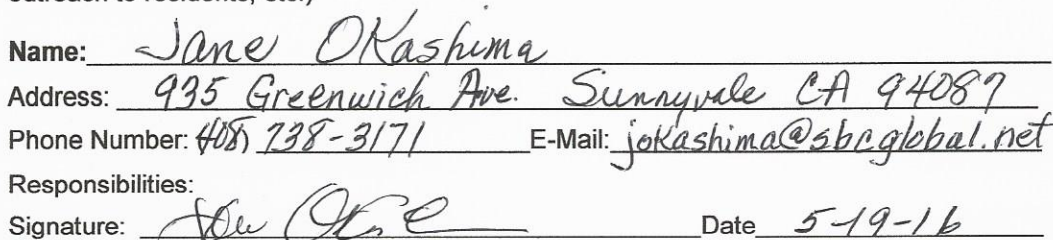 Name: Jane OKashima
Address: 935 Greenwich Ave. Sunnyvale CA 94087
Phone Number: (408) 738-3171 E-Mail: jokashima@sbcglobal.net
Responsibilities:
Signature: Date 5-19-16